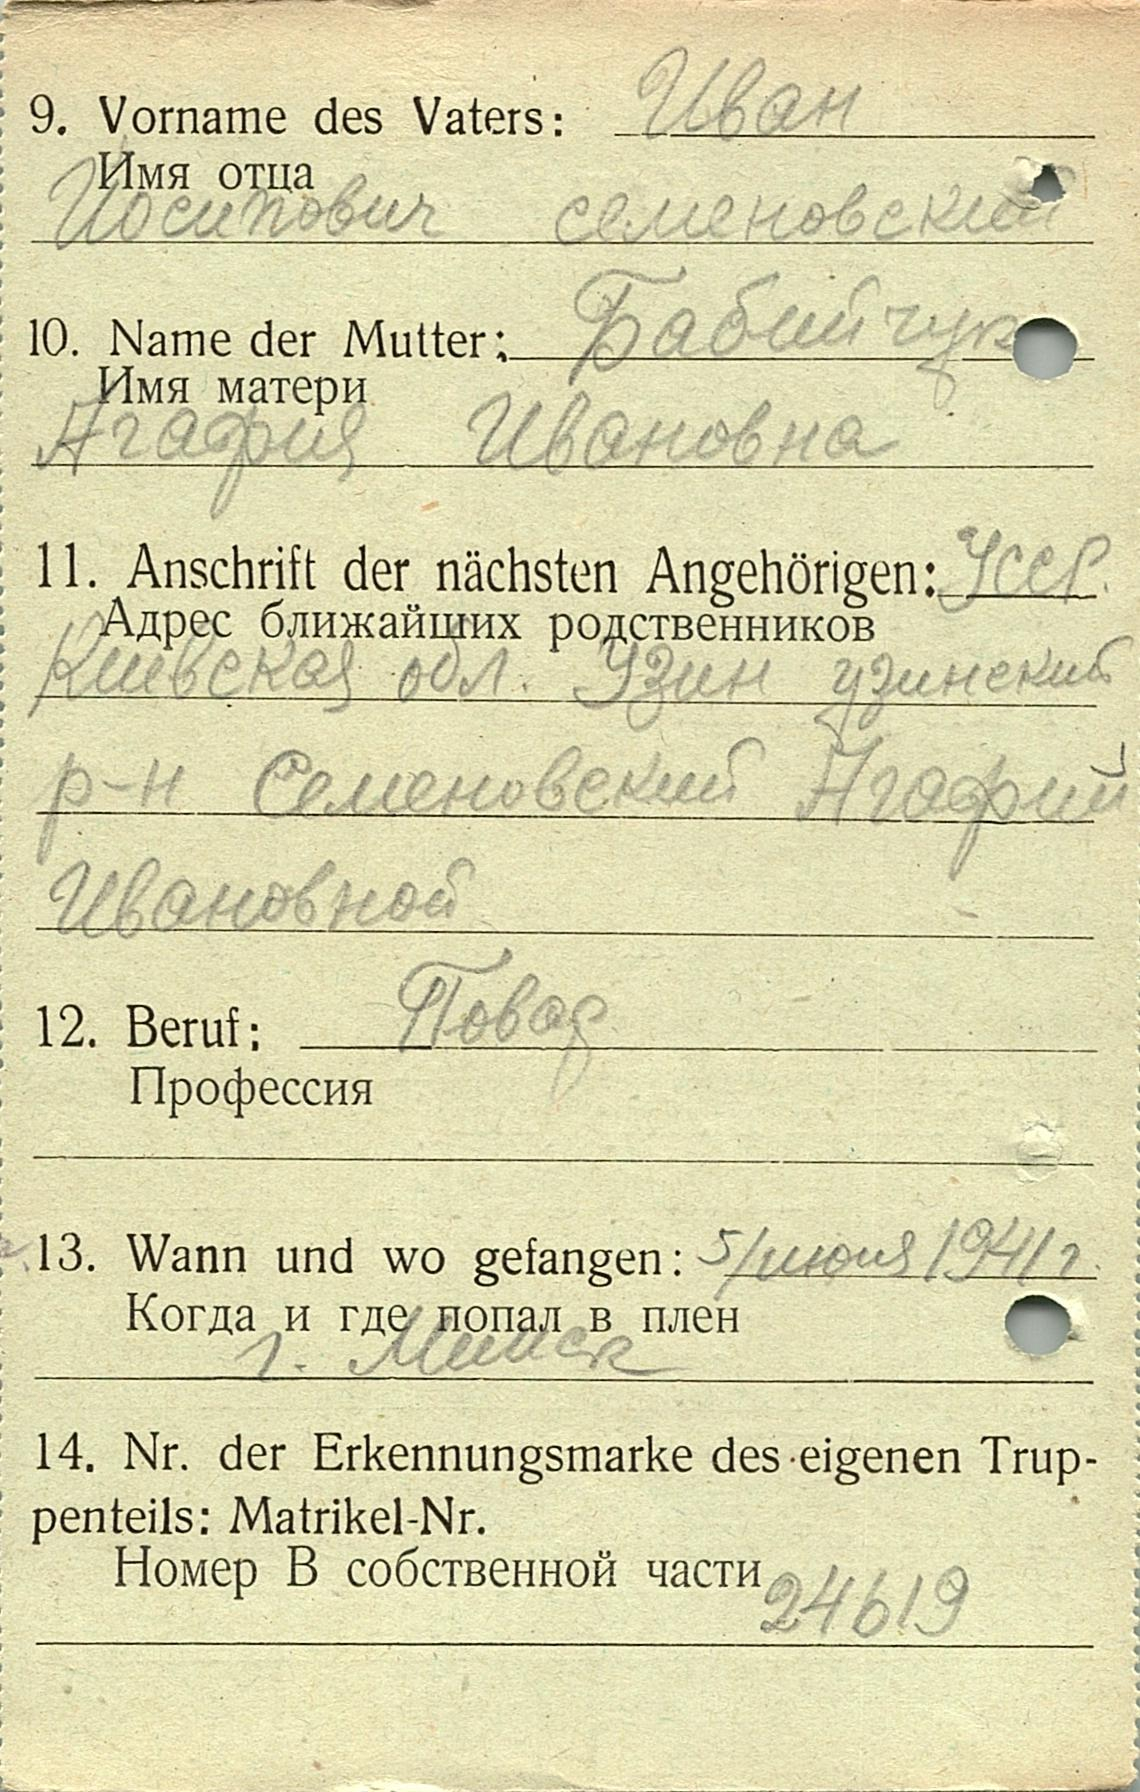 9. Vorname des Vaters: Иван
Имя отца
Иосипович семеновский
10. Name der Mutter: Бабийчук
Имя матери
Агафия Ивановна
11. Anschrift der nächsten Angehörigen: УССР.
Адрес ближайших родственников
Киевская обл. Узин узинский
р-н Семеновский Агафий
Ивановной
12. Beruf: Повар
Профессия
13. Wann und wo gefangen: 5/июля 1941 г.
Когда и где попал в плен
г. Минск
14. Nr. der Erkennungsmarke des eigenen Trup-
penteils: Matrikel-Nr.
Номер В собственной части
24619